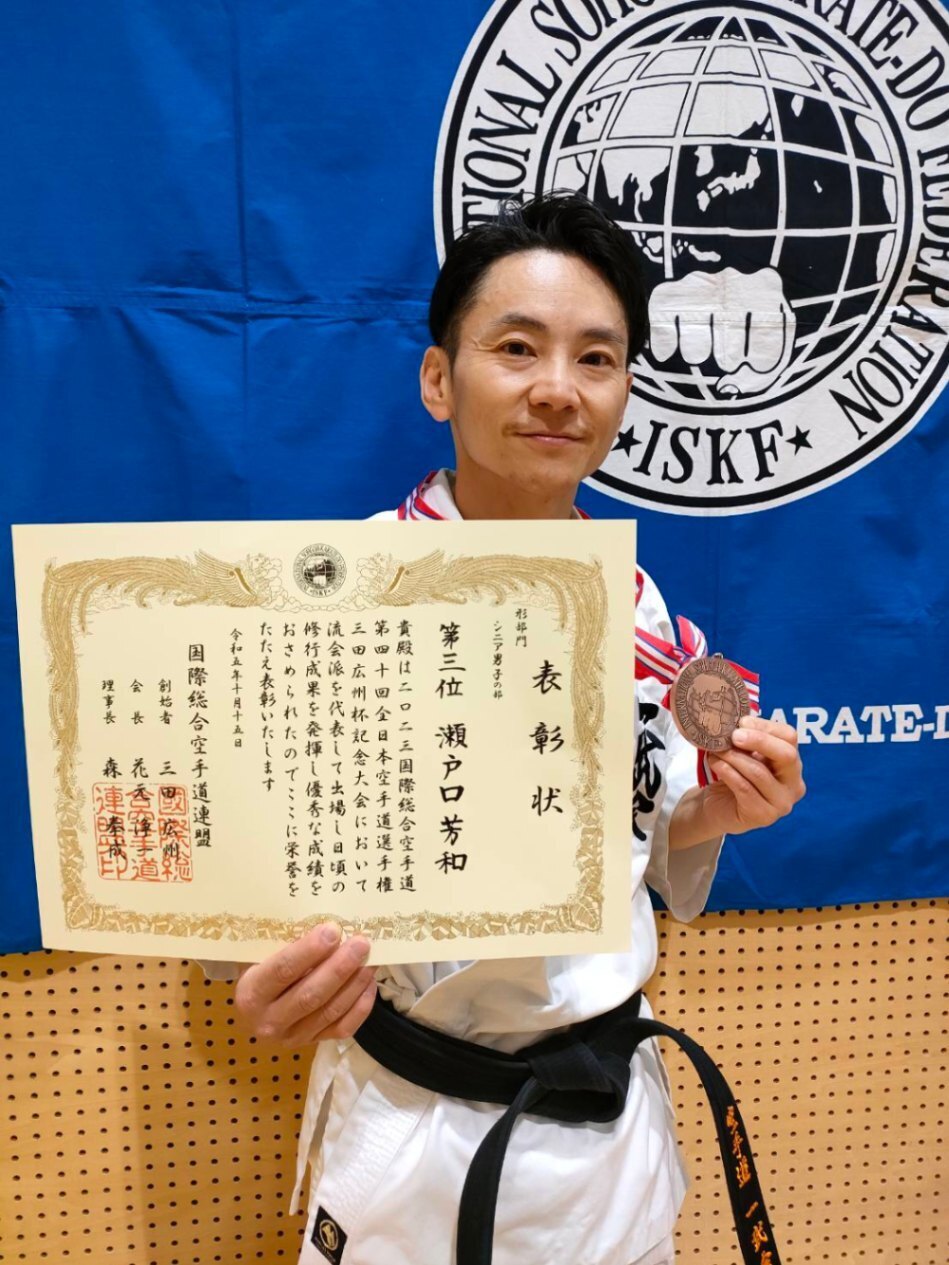 INTERNATIONAL SOHGO KARATE-DO FEDERATION
★ISKF★
KARATE-D
表彰状
形部門
シニア男子の部
第三位 瀬戸口芳和
貴殿は二〇二三国際総合空手道
第四十回全日本空手道選手権
三田広州杯記念大会において
流会派を代表して出場し日頃の
修行成果を発揮し優秀な成績を
おさめられたのでここに栄誉を
たたえ表彰いたします
令和五年十月十五日
国際総合空手道連盟
創始者 三田広州
会長 花元淳一
理事長 森奉成
國際総
合空手道
連盟印
ISKF
空手道 一武会